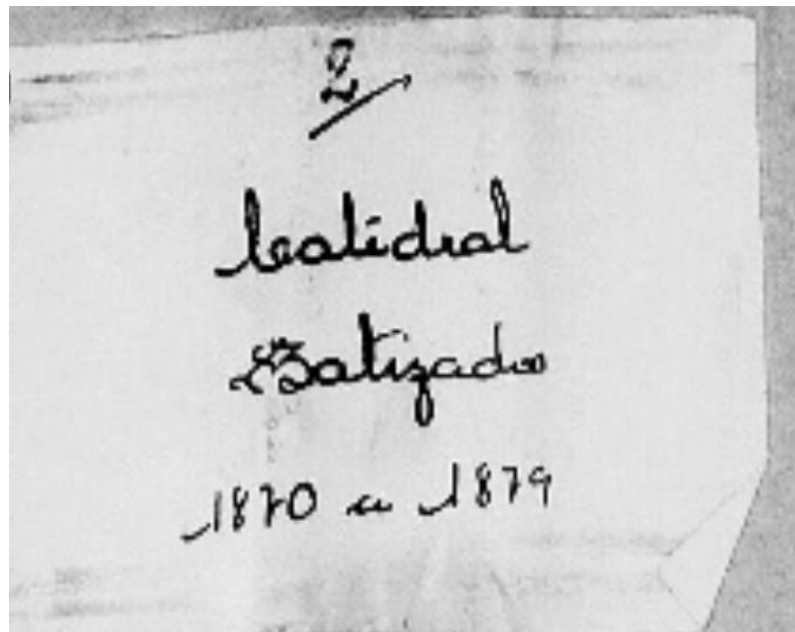 2
Catidral
Batizados
1870 a 1879